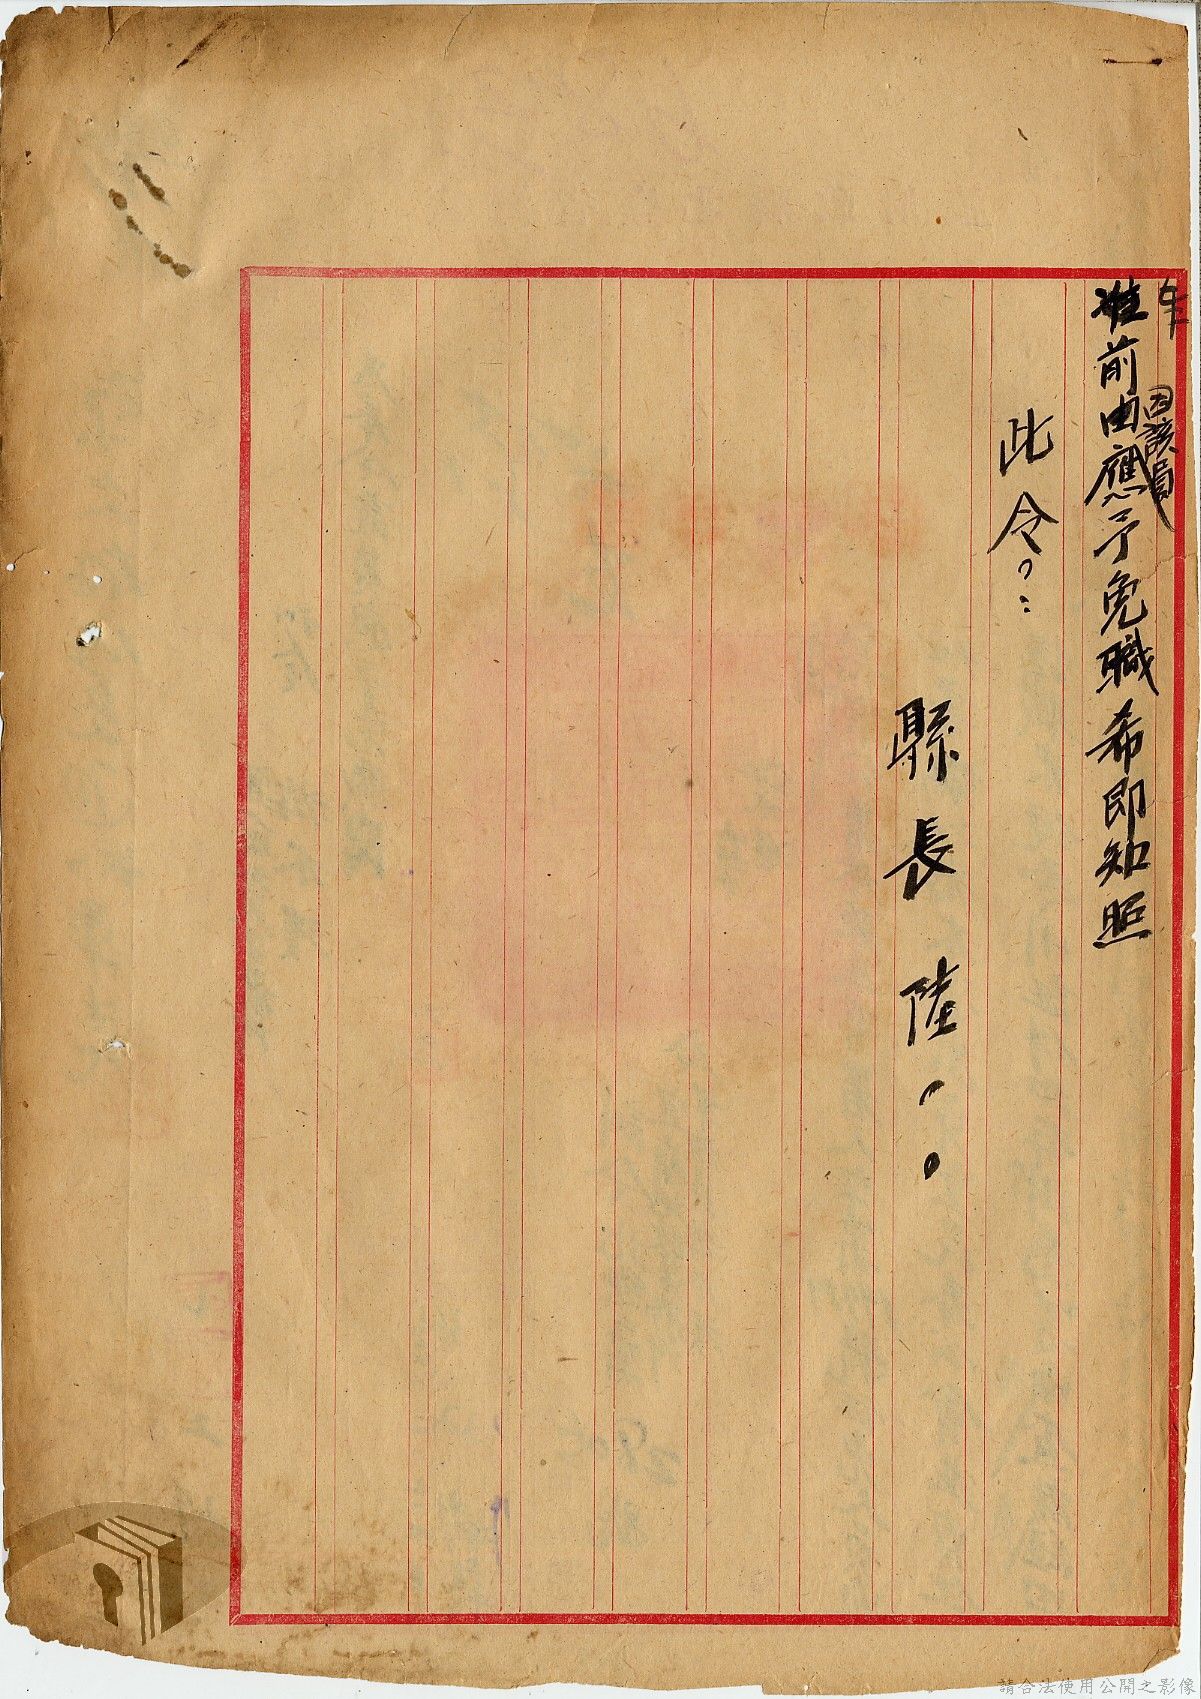 准前由應予免職希即知照
因該員
此令
縣長陸
請合法使用公開之影像